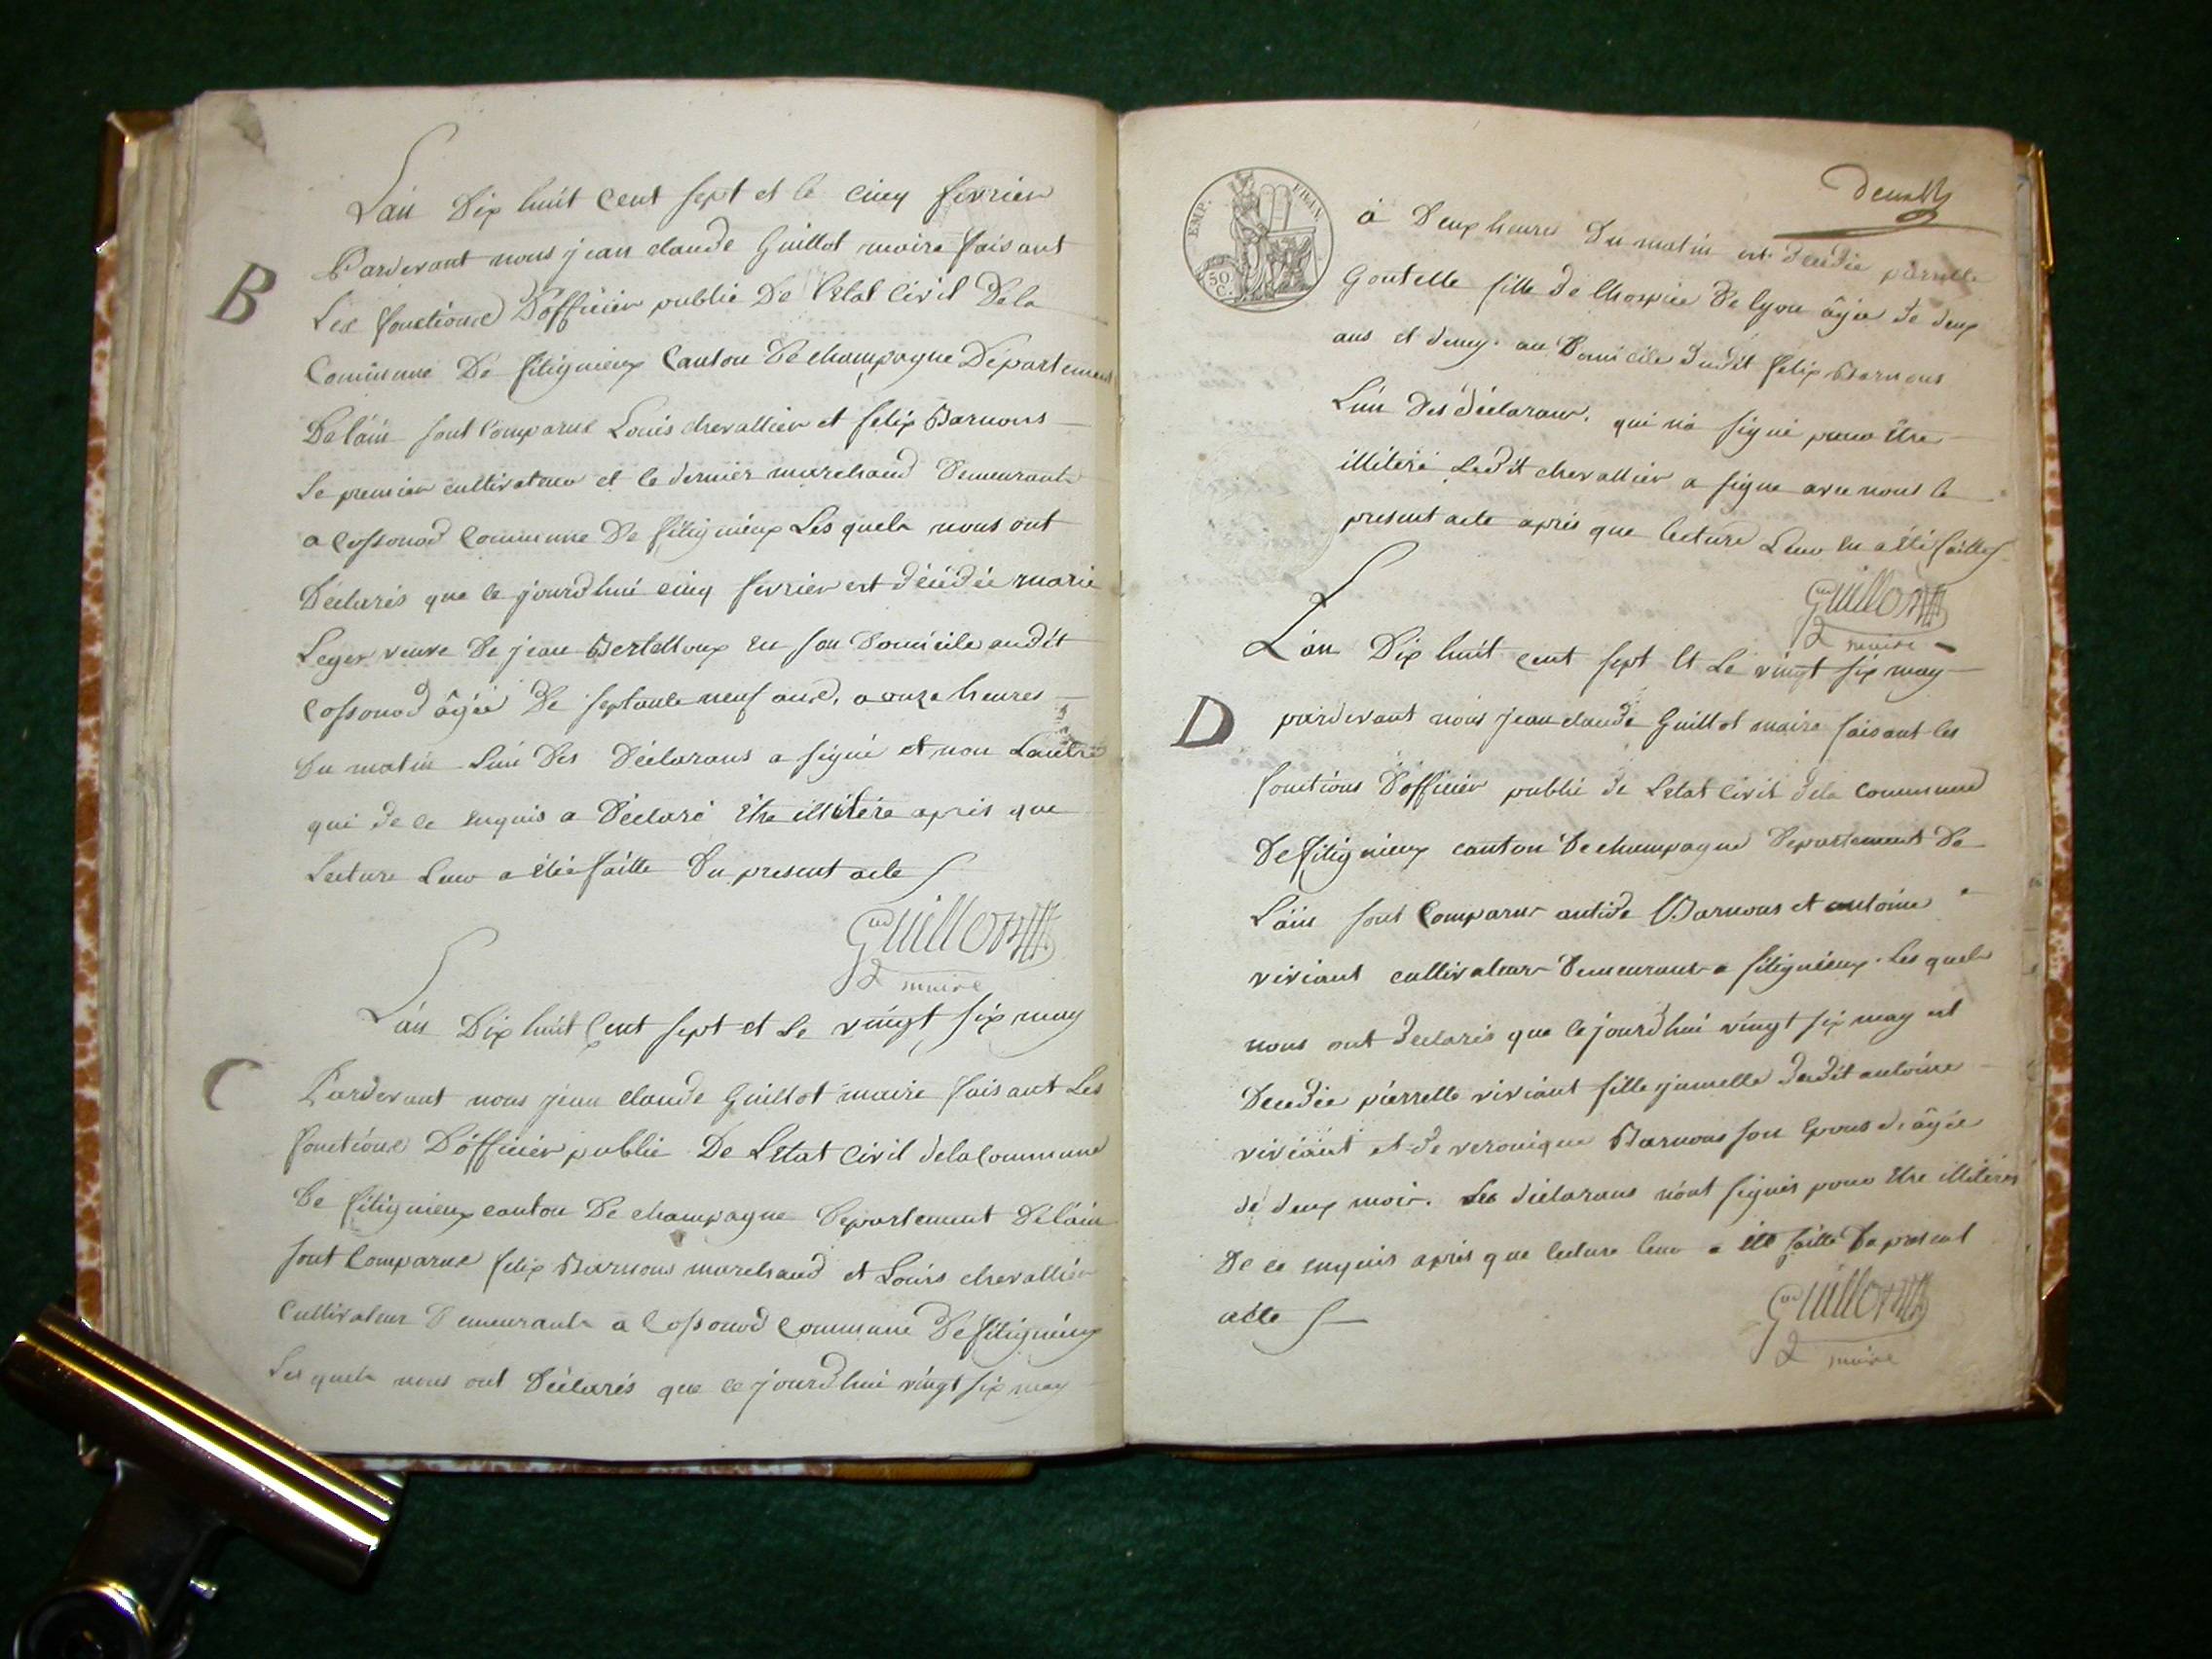 L'an Dix huit Cent sept et le cinq fevrier
B
Pardevant nous jean claude Guillot maire faisant
Les fonctions D'officier public De l'Etat Civil De la
Commune De fitignieux Canton De champagne Departement
De lain sont Comparus Louis chevallier et felix Barnous
Le premier cultivateur et le dernier marchand Demeurants
a Cossonod Commune De fitignieux Les quels nous ont
Déclarés que le jourd'hui cinq fevrier est décédée marie
Leger veuve De jean Berthelloux en son Domicile audit
Cossonod âgée De septante neuf ans, a onze heures
Du matin L'un Des Déclarans a signé et non Lautre
qui de ce enquis a Déclaré être illitéré apris que
Lecture Leur a étée faitte Du present acte
Guillot
maire
L'an Dix huit Cent sept et Le vingt six may
C
Pardevant nous jean claude Guillot maire faisant Les
fonctions D'officier public De L'Etat Civil de la Commune
De fitignieux canton De champagne Departement De lain
sont Comparus felix Barnous marchand et Louis chevallier
Cultivateur Demeurants a Cossonod Commune De fitignieux
Les quels nous ont Déclarés que ce jourd'hui vingt six may
EMP. FRAN.
50 C.
à Deux heures Du matin est décédée pierrette
Goutelle fille de lhospice De lyon âgée de deux
ans et demy. au Domicile dudit felix Barnous
L'un des déclarans. qui n'a signé pour être
illitéré Ledit chevallier a signé avec nous le
present acte après que lecture Leur en a été faitte
Guillot
maire
L'an Dix huit cent sept Et Le vingt six may
D
pardevant nous jean claude Guillot maire faisant les
fonctions D'officier public de L'etat Civil dela Commune
De fitignieux canton De champagne Departement De
L'ain sont Comparus antide Barnous et antoine
viviant cultivateurs Demeurants a fitignieux. Les quels
nous ont declarés que le jourd'hui vingt six may est
Decedée pierrette viviant fille jumelle dudit antoine
viviant et de veronique Barnous son Epouse, âgée
de deux mois. Les déclarans n'ont signés pour Etre illitérés
De ce enquis après que lecture leur a été faitte Du present
acte
Guillot
maire